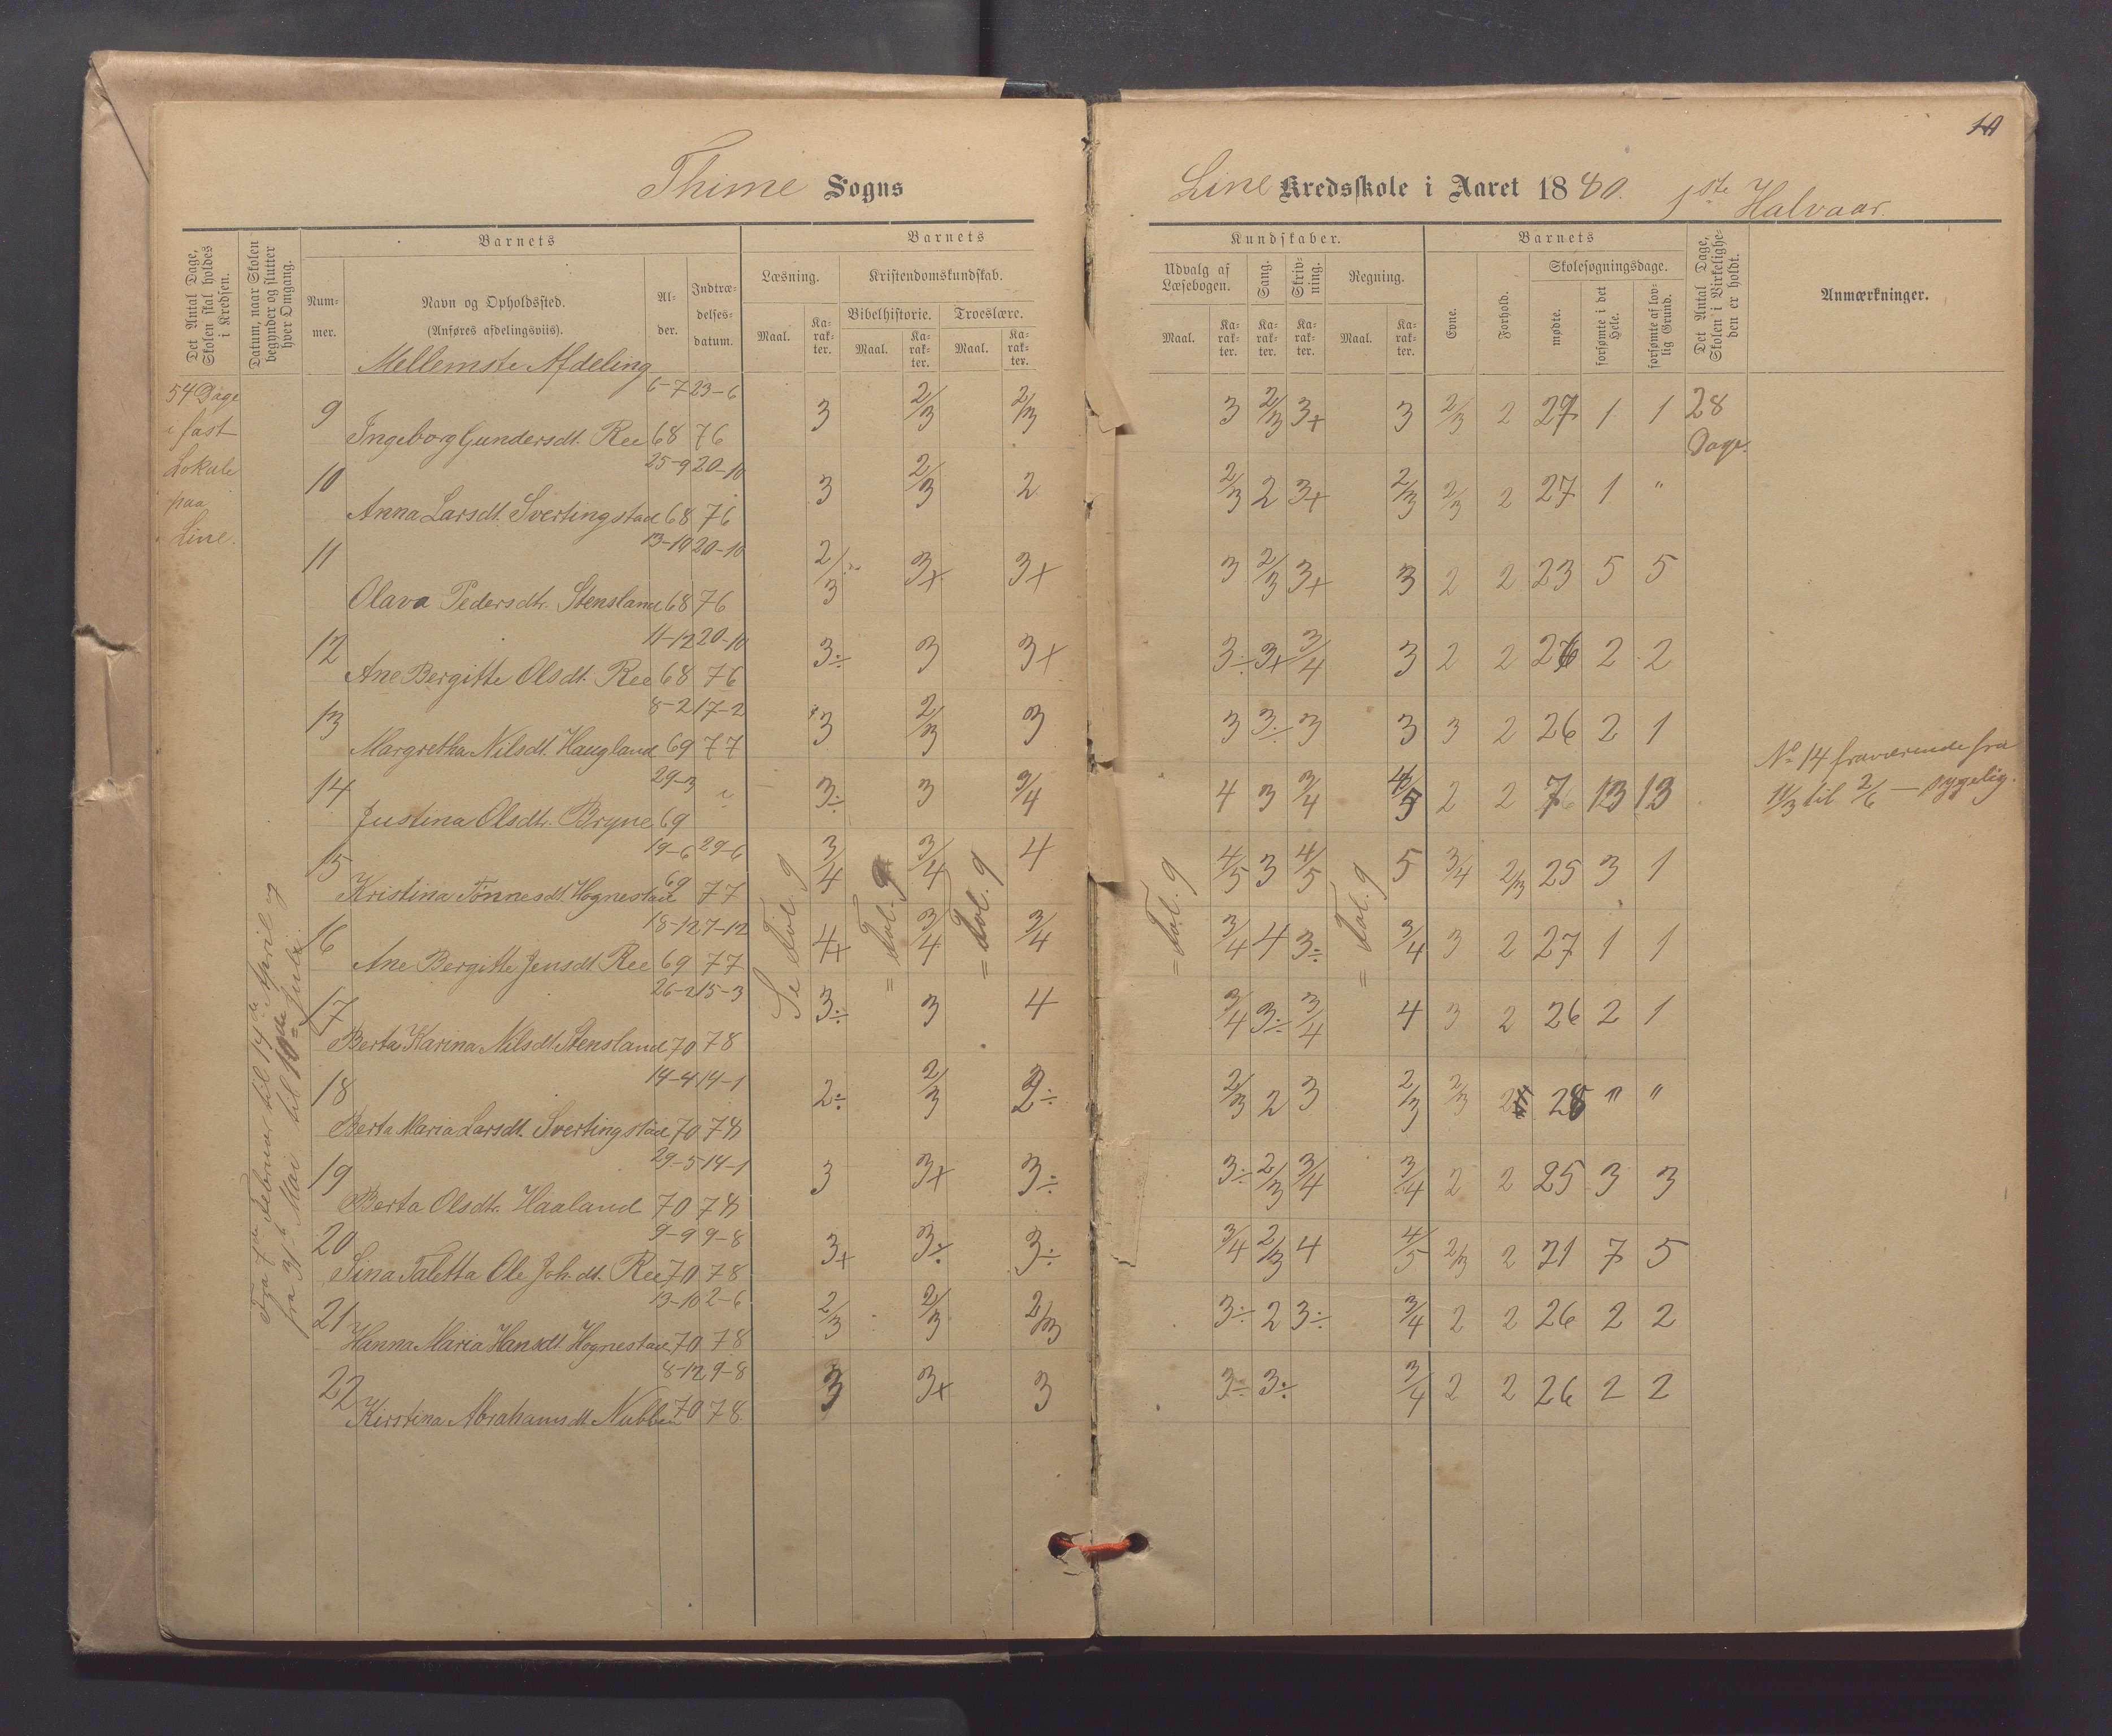 10
Thime Sogns
Line Kredsskole i Aaret 1880. 1ste Halvaar.
Det Antal Dage, Skolen skal holdes i Kredsen.
Datum, naar Skolen begynder og slutter hver Omgang.
Barnets
Nummer.
Navn og Opholdssted.
(Anføres afdelingsviis).
Alder.
Indtrædelsesdatum.
Barnets
Læsning.
Maal.
Karakter.
Kristendomskundskab.
Bibelhistorie.
Maal.
Karakter.
Troeslære.
Maal.
Karakter.
Kundskaber.
Udvalg af Læsebogen.
Maal.
Karakter.
Sang.
Karakter.
Skrivning.
Karakter.
Regning.
Maal.
Karakter.
Barnets
Evne.
Forhold.
Skolesøgningsdage.
mødte.
forsømte i det Hele.
forsømte af lovlig Grund.
Det Antal Dage, Skolen i Virkeligheden er holdt.
Anmærkninger.
Mellemste Afdeling
54 Dage
i fast
Lokale
paa
Line.
Fra 7de Februar til 14de April og
fra 31te Mai til 10de Juli.
9 Ingeborg Gundersdt. Ree 6-7 68 23-6 76 3 2/3 2/3 3 2/3 3+ 3 2/3 2 27 1 1 28 Dage.
10 Anna Larsdt. Svertingstad 25-9 68 20-10 76 3 2/3 2 2/3 2 3+ 2/3 2/3 2 27 1 "
11 Olava Pedersdtr. Stensland 13-10 68 20-10 76 2/3 3+ 3+ 3 2/3 3+ 3 2 2 23 5 5
12 Ane Bergitte Olsdt. Ree 11-12 68 20-10 76 3÷ 3 3+ 3÷ 3+ 3/4 3 2 2 26 2 2
13 Margretha Nilsdt. Haugland 8-2 69 17-2 77 3 2/3 3 3 3÷ 3 3 3 2 26 2 1
14 Justina Olsdtr. Bryne 29-3 69 " 3÷ 3 3/4 4 3 3/4 4/5 2 2 13 13
No 14 fraværende fra
11/3 til 2/6 — sygelig.
15 Kristina Tønnesdt. Hognestad 19-6 69 29-6 77 3/4 3/4 4 4/5 3 4/5 5 3/4 2/3 25 3 1
16 Ane Bergitte Jensdt. Ree 18-12 69 7-12 77 4+ 3/4 3/4 3/4 4 3÷ 3/4 3 2 27 1 1
17 Berta Karina Nilsdt. Stensland 26-2 70 15-3 78 3÷ 3 4 3/4 3÷ 3/4 4 3 2 26 2 1
18 Berta Maria Larsdt. Svertingstad 14-4 70 14-1 78 2÷ 2/3 2÷ 2/3 2 3 2/3 2/3 2 28 " "
19 Berta Olsdtr. Haaland 29-5 70 14-1 78 3 3+ 3÷ 3÷ 2/3 3/4 3/4 2 2 25 3 3
20 Sina Taletta Ole Joh.dt. Ree 9-9 70 9-8 78 3+ 3÷ 3÷ 3/4 2/3 4 4/5 2/3 2 21 7 5
21 Hanna Maria Hansdt. Hognestad 13-10 70 2-6 78 2/3 2/3 2/3 3÷ 2 3÷ 3/4 2 2 26 2 2
22 Kirstina Abrahamsdt. Nubben 8-12 70 9-8 78 3 3+ 3 3÷ 3÷ 3/4 2 2 26 2 2
Se Fol. 9
= Fol. 9
= Fol. 9
= Fol. 9
= Fol. 9